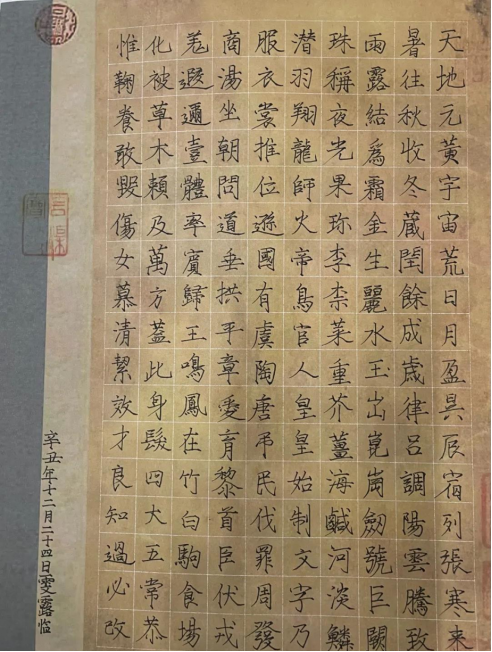 天地元黃宇宙荒日月盈昃辰宿列張寒来
暑往秋收冬蔵閏餘成歲律呂調陽雲騰致
雨露結為霜金生麗水玉出崑崗劒號巨闕
珠稱夜光果珍李柰菜重芥薑海鹹河淡鱗
潜羽翔龍師火帝鳥官人皇皇始制文字乃
服衣裳推位遜國有虞陶唐弔民伐罪周發
商湯坐朝問道垂拱平章愛育黎首臣伏戎
羌遐邇壹體率賓歸王鳴鳳在竹白駒食場
化被草木賴及萬方蓋此身髮四大五常恭
惟鞠養敢毀傷女慕清絜效才良知過必改
辛丑年十二月二十四日雯露临